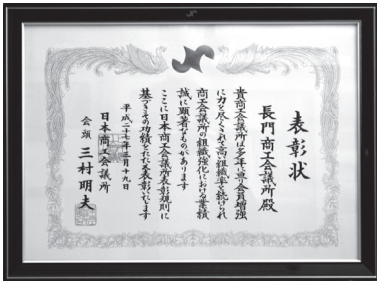 表彰状
長門商工会議所殿
貴商工会議所は多年に亘り会員増強
に力を尽くされて高い組織率を続けられ
商工会議所の組織強化における業績
誠に顕著なものがあります
ここに日本商工会議所表彰規則に
基づきその功績をたたえ表彰いたします
平成二十七年三月十九日
日本商工会議所
会頭 三村明夫